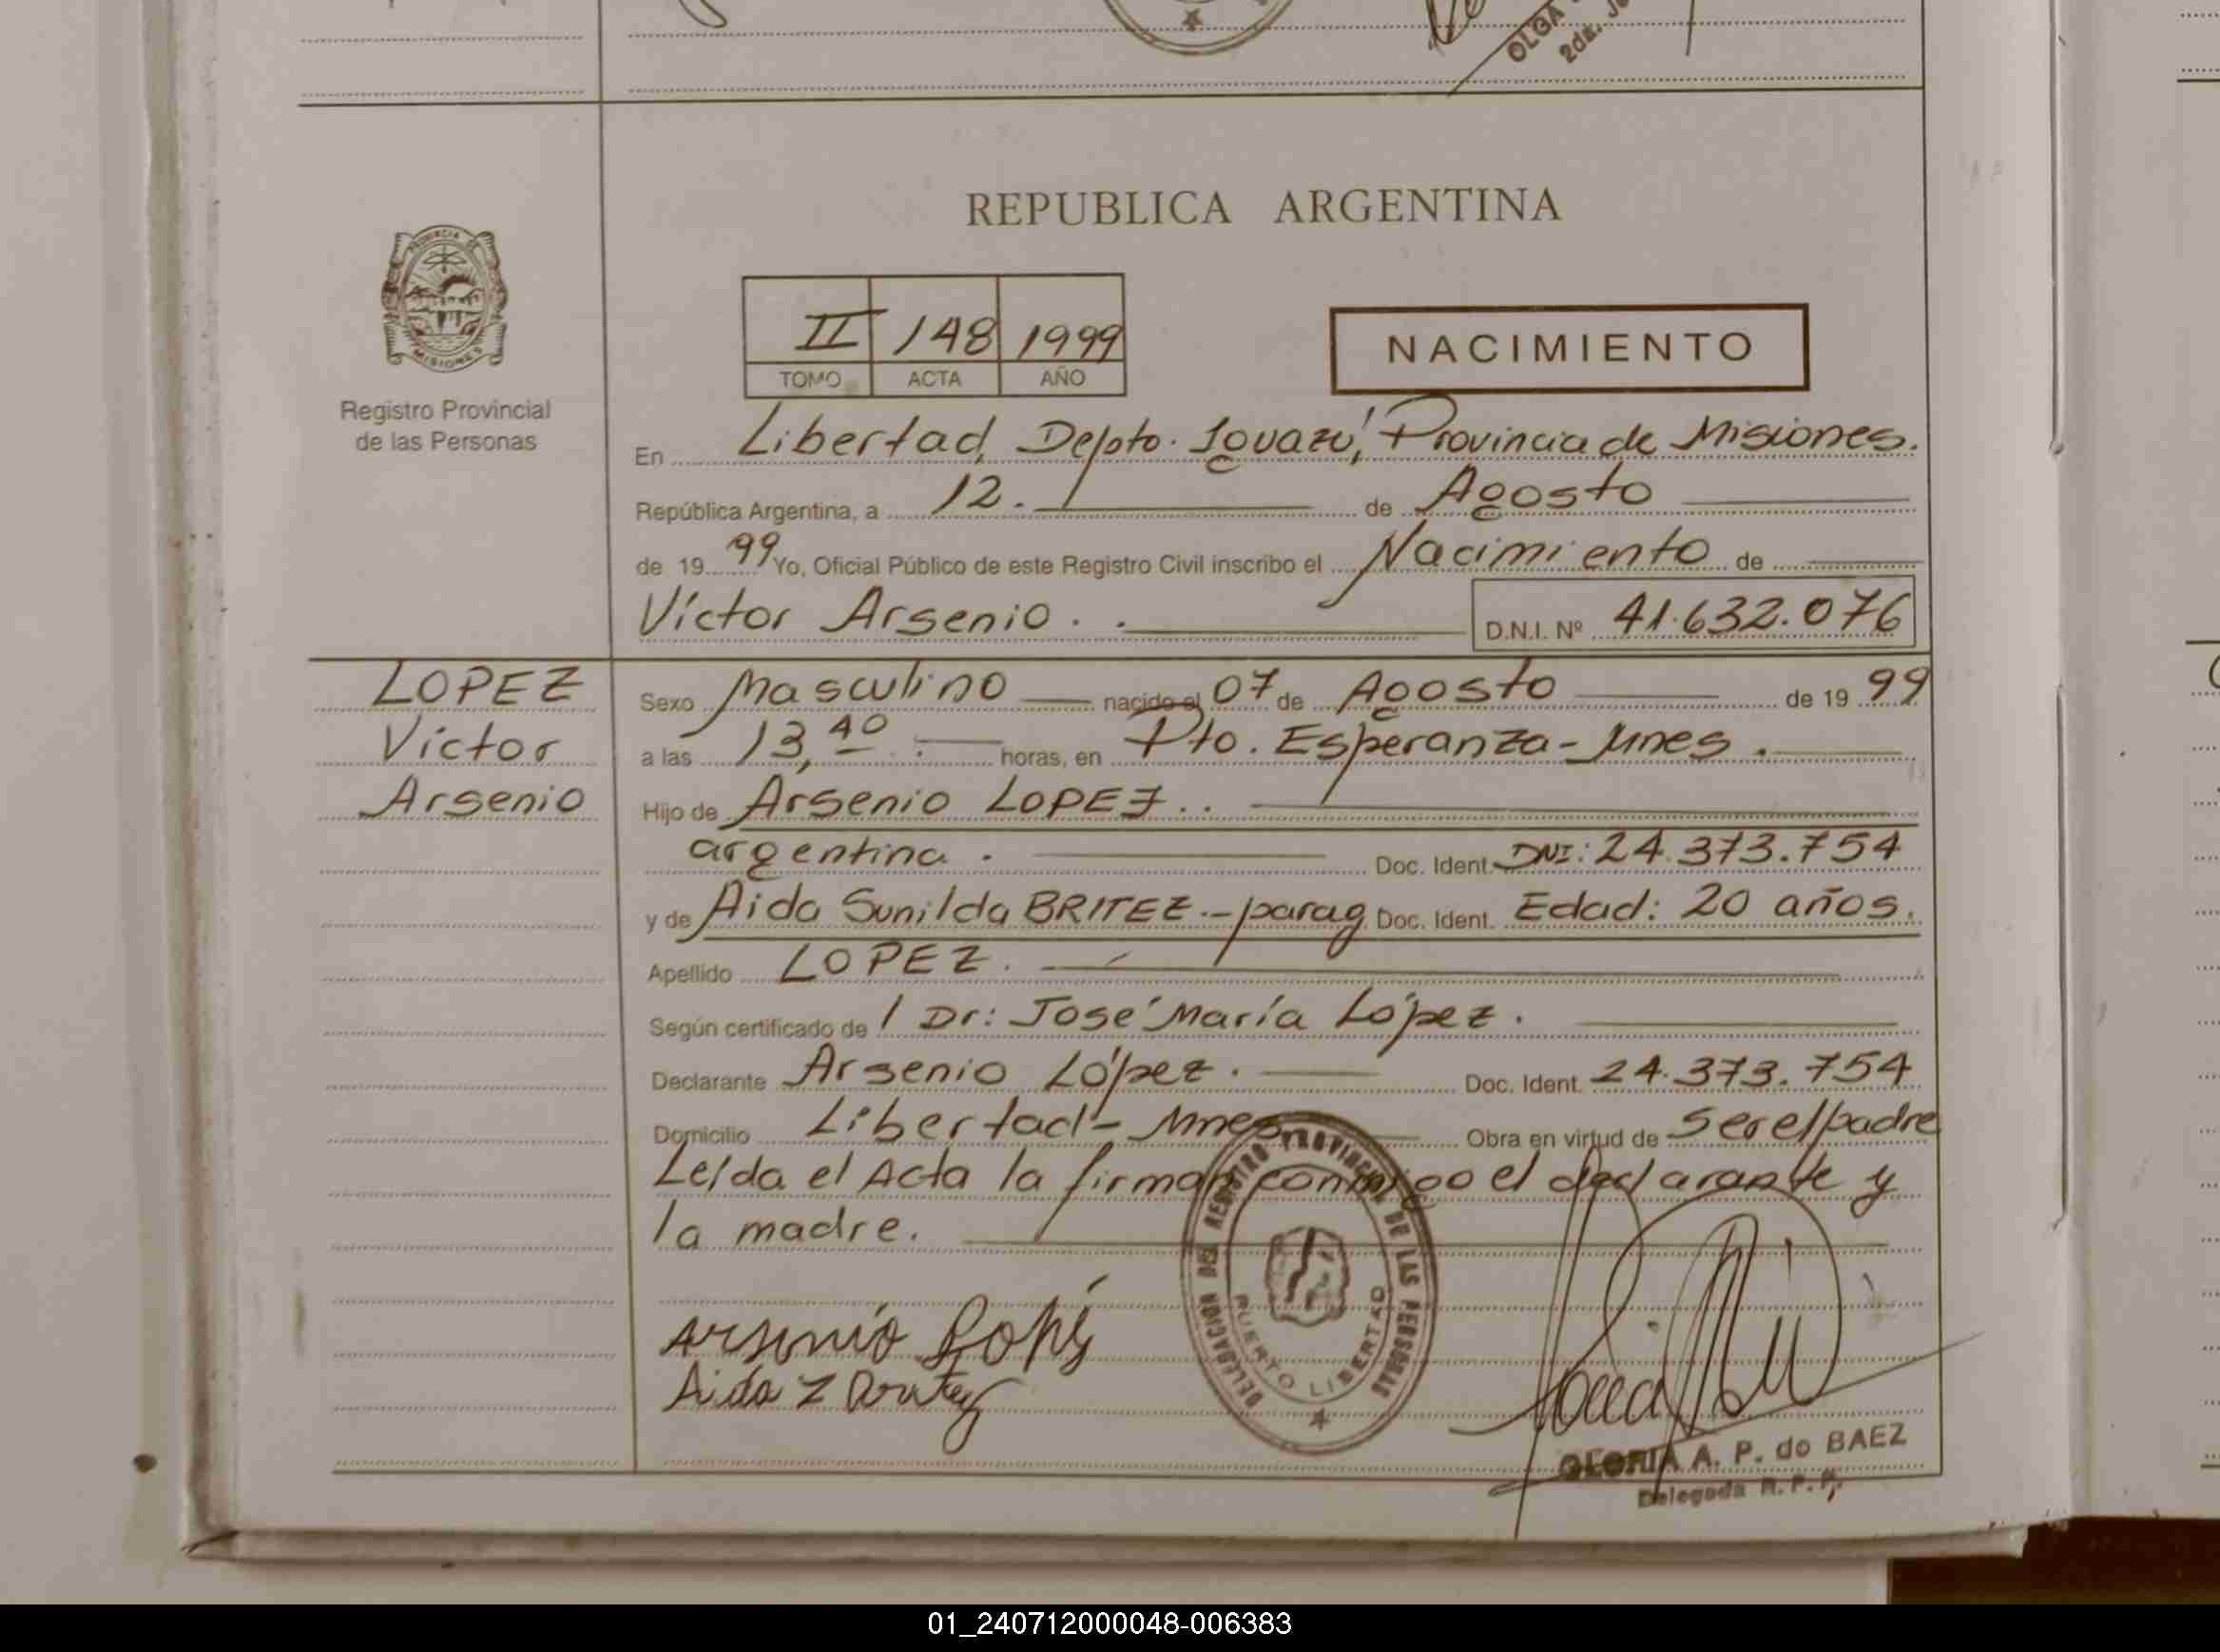 OLGA
2da. Je
REPUBLICA ARGENTINA
PROVINCIA DE
MISIONES
Registro Provincial
de las Personas
II 148 1999
TOMO ACTA AÑO
NACIMIENTO
En Libertad, Depto. Iguazú, Provincia de Misiones.
República Argentina, a 12. de Agosto
de 19 99 Yo, Oficial Público de este Registro Civil inscribo el Nacimiento de
Víctor Arsenio . . D.N.I. Nº 41.632.076
LOPEZ
Víctor
Arsenio
Sexo Masculino nacido el 07 de Agosto de 19 99
a las 13,40 . horas, en Pto. Esperanza - Mnes .
Hijo de Arsenio LOPEZ ..
argentina . Doc. Ident. DNI: 24.373.754
y de Aida Sunilda BRITEZ .- parag Doc. Ident. Edad: 20 años.
Apellido LOPEZ .
Según certificado de / Dr: José María López .
Declarante Arsenio López . Doc. Ident. 24.373.754
Domicilio Libertad - Mnes Obra en virtud de ser el padre
Leída el Acta la firman conmigo el declarante y
la madre.
DELEGACION DEL REGISTRO PROVINCIAL DE LAS PERSONAS
PUERTO LIBERTAD
Arsenio Lopés
Aida
GLORIA A. P. de BAEZ
Delegada R. P. P.
01_240712000048-006383